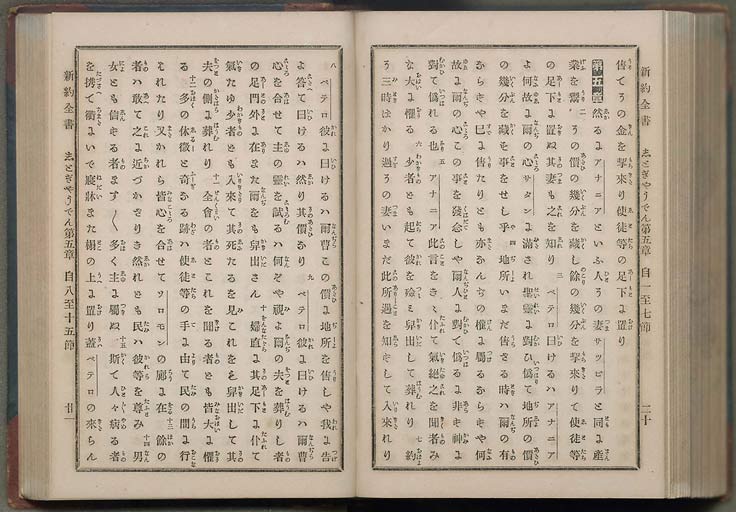 新約全書 志とぎやうでん第五章 自一至七節 二十
售てその金を挈來り使徒等の足下に置り
第五章 然るにアナニアといふ人その妻サッピラと同に產
業を鬻 二 その價の幾分を藏し餘の幾分を挈來りて使徒等
の足下に置ぬ其妻も之を知り 三 ペテロ曰けるハアナニア
よ何故に爾の心サタンに滿され聖靈に對ひ僞て地所の價
の幾分を藏す事をせし乎 四 地所いまだ售ざる時ハ爾の有
ならずや已に售たりとも亦なんぢの權に屬るならずや何
故に爾の心この事を發念しや爾人に對て僞るに非ず神に
對て僞れる也 五 アナニア此言をきゝ仆て氣絕之を聞者み
な大に懼る 六 少者ども起て彼を殮ミ舁出して葬れり 七 約
そ三時ばかり過その妻いまだ此所遇を知ずして入來れり
新約全書 志とぎやうでん第五章 自八至十五節 廿一
八 ペテロ彼に曰けるハ爾曹この價に地所を售しや我に吿
よ答て曰けるハ然り其價なり 九 ペテロ彼に曰けるハ爾曹
心を合せて主の靈を試るハ何ぞや視よ爾の夫を葬りし者
の足門外に在また爾をも舁出さん 十 婦直に其足下に仆て
氣たゆ少者ども入來て其死たるを見これをも舁出して其
夫の側に葬れり 十一 全會の者とこれを聞る者とも皆大に懼
る 十二 多の休徵と奇なる跡ハ使徒等の手に由て民の間に行
れたり又かれら皆心を合せてソロモンの廊に在 十三 餘の
者ハ敢て之に近づかざりき然れども民ハ彼等を尊み 十四 男
女とも信ずる者ます〳〵多く主に屬ぬ 十五 斯て人々病る者
を携て衢にいで寢牀また榻の上に置り蓋ペテロの來らん